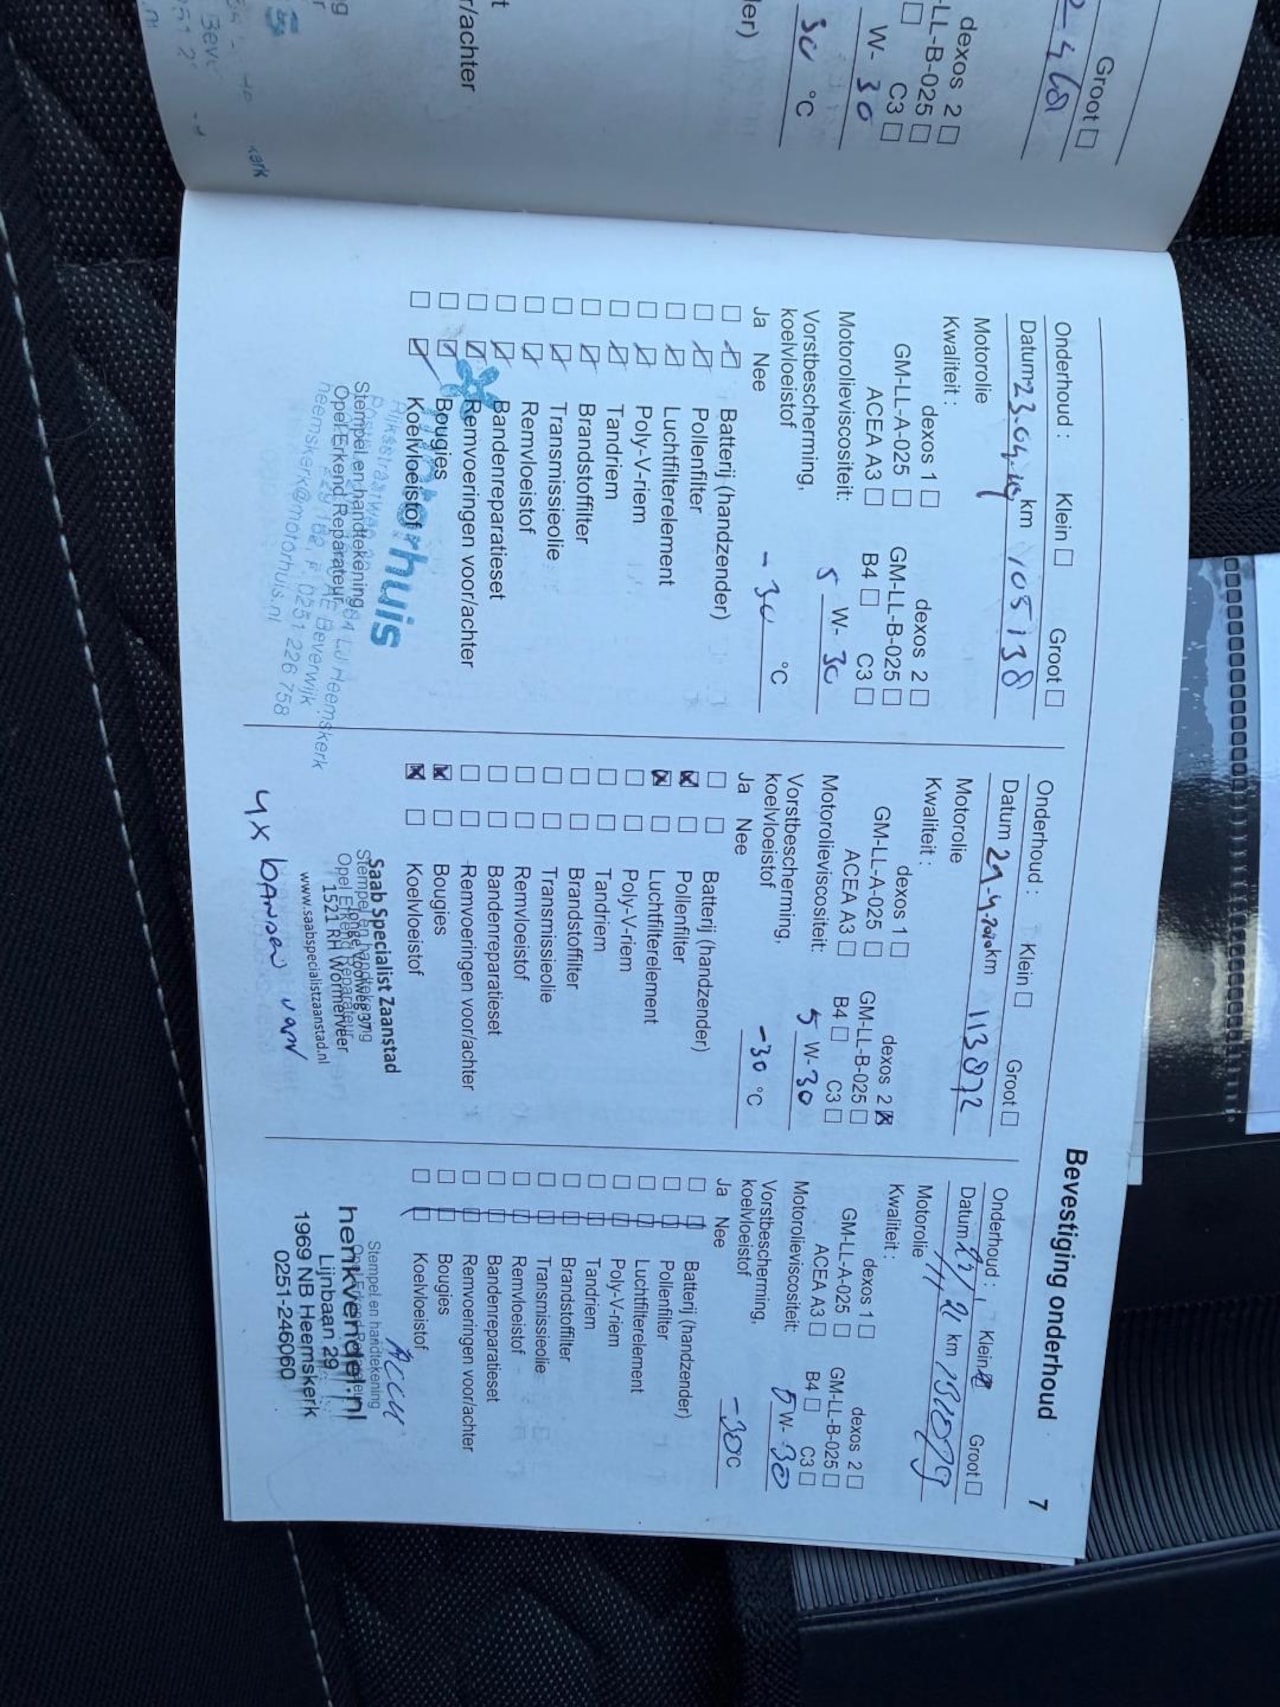 Groot ☐
dexos 2 ☐
-LL-B-025 ☐
☐ C3 ☐
W- 30
30 °C
ler)
r/achter
t
Bevestiging onderhoud 7
Onderhoud : Klein ☐ Groot ☐
Datum 23.04.19 km 105138
Motorolie
Kwaliteit :
dexos 1 ☐ dexos 2 ☐
GM-LL-A-025 ☐ GM-LL-B-025 ☐
ACEA A3 ☐ B4 ☐ C3 ☐
Motorolieviscositeit: 5 W- 30
Vorstbescherming,
koelvloeistof -30 °C
Ja Nee
☐ ☑ Batterij (handzender)
☐ ☑ Pollenfilter
☐ ☑ Luchtfilterelement
☐ ☑ Poly-V-riem
☐ ☑ Tandriem
☐ ☑ Brandstoffilter
☐ ☑ Transmissieolie
☐ ☑ Remvloeistof
☐ ☑ Bandenreparatieset
☐ ☑ Remvoeringen voor/achter
☐ ☑ Bougies
☐ ☑ Koelvloeistof
Stempel en handtekening
Opel Erkend Reparateur
LJ Heemskerk
Beverwijk
0251 226 758
heemskerk@motorhuis.nl
Onderhoud : Klein ☐ Groot ☐
Datum 21-4-2020 km 113872
Motorolie
Kwaliteit :
dexos 1 ☐ dexos 2 ☒
GM-LL-A-025 ☐ GM-LL-B-025 ☐
ACEA A3 ☐ B4 ☐ C3 ☐
Motorolieviscositeit: 5 W- 30
Vorstbescherming,
koelvloeistof -30 °C
Ja Nee
☐ ☐ Batterij (handzender)
☒ ☐ Pollenfilter
☒ ☐ Luchtfilterelement
☐ ☐ Poly-V-riem
☐ ☐ Tandriem
☐ ☐ Brandstoffilter
☐ ☐ Transmissieolie
☐ ☐ Remvloeistof
☐ ☐ Bandenreparatieset
☐ ☐ Remvoeringen voor/achter
☒ ☐ Bougies
☒ ☐ Koelvloeistof
Saab Specialist Zaanstad
Stempel en handtekening
Opel Erkend Reparateur
1521 RH Wormerveer
www.saabspecialistzaanstad.nl
4x
Onderhoud : Klein ☒ Groot ☐
Datum km
Motorolie
Kwaliteit :
dexos 1 ☐ dexos 2 ☐
GM-LL-A-025 ☐ GM-LL-B-025 ☐
ACEA A3 ☐ B4 ☐ C3 ☐
Motorolieviscositeit: 5 W- 30
Vorstbescherming,
koelvloeistof -30 °C
Ja Nee
☐ ☐ Batterij (handzender)
☐ ☐ Pollenfilter
☐ ☐ Luchtfilterelement
☐ ☐ Poly-V-riem
☐ ☐ Tandriem
☐ ☐ Brandstoffilter
☐ ☐ Transmissieolie
☐ ☐ Remvloeistof
☐ ☐ Bandenreparatieset
☐ ☐ Remvoeringen voor/achter
☐ ☐ Bougies
☐ ☐ Koelvloeistof
Accu
Stempel en handtekening
henkvendel.nl
Lijnbaan 29
1969 NB Heemskerk
0251-246060